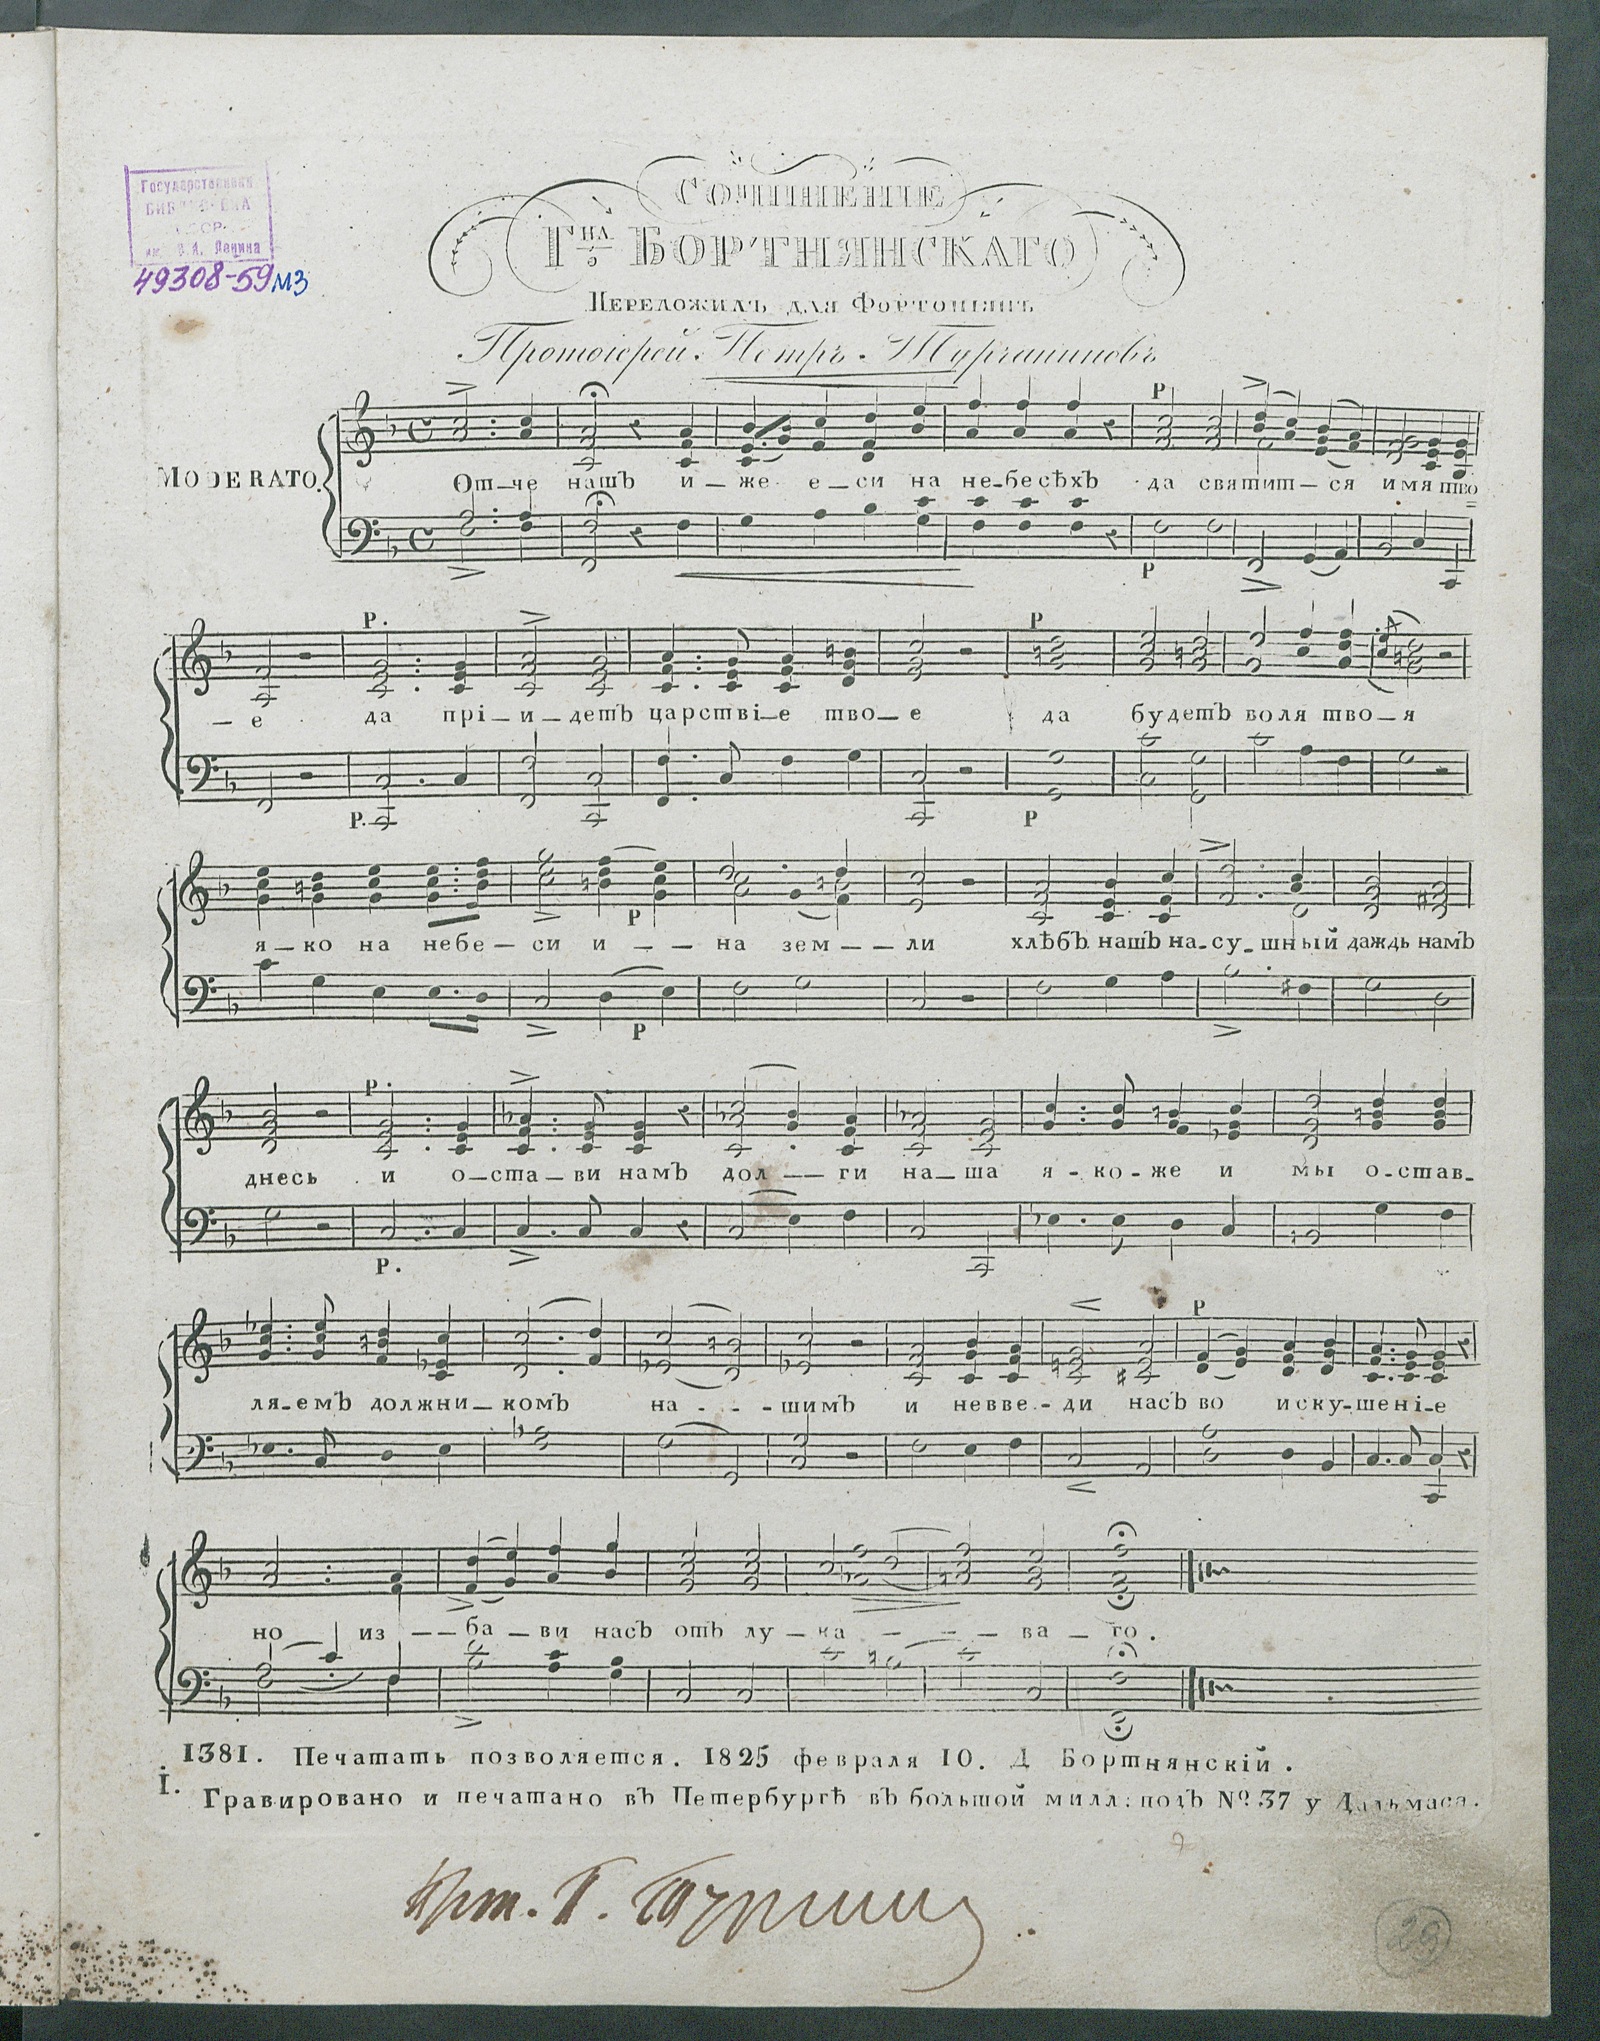 Государственная
БИБЛИОТЕКА
СССР
им. В. И. Ленина
49308-59 мз
СОЧИНЕНІЕ
Гна БОРТНЯНСКАГО
Переложилъ для Фортопіянъ
Протоіерей. Петръ. Турчаниновъ
MODERATO.
P
От-че нашъ и-же е-си на не-бесѣхъ да святит-ся имя тво
P
P. P
-е да прі-и-детъ царстві-е тво-е да будетъ воля тво-я
P. P
P
я-ко на небе-си и - - на зем - - ли хлѣбъ нашъ на-су-шный даждь намъ
P
P.
днесь и о-ста-ви намъ дол - - ги на-ша я-ко-же и мы о-став-
P.
P
ля-емъ должни-комъ на - - - шимъ и невве-ди насъ во иску-шені-е
но из - - ба-ви насъ отъ лу-ка - - - ва-го.
1381. Печатать позволяется. 1825 февраля 10. Д Бортнянскій.
I. Гравировано и печатано въ Петербургѣ въ большой милл: подъ № 37 у Дальмаса.
Прт. П.
29